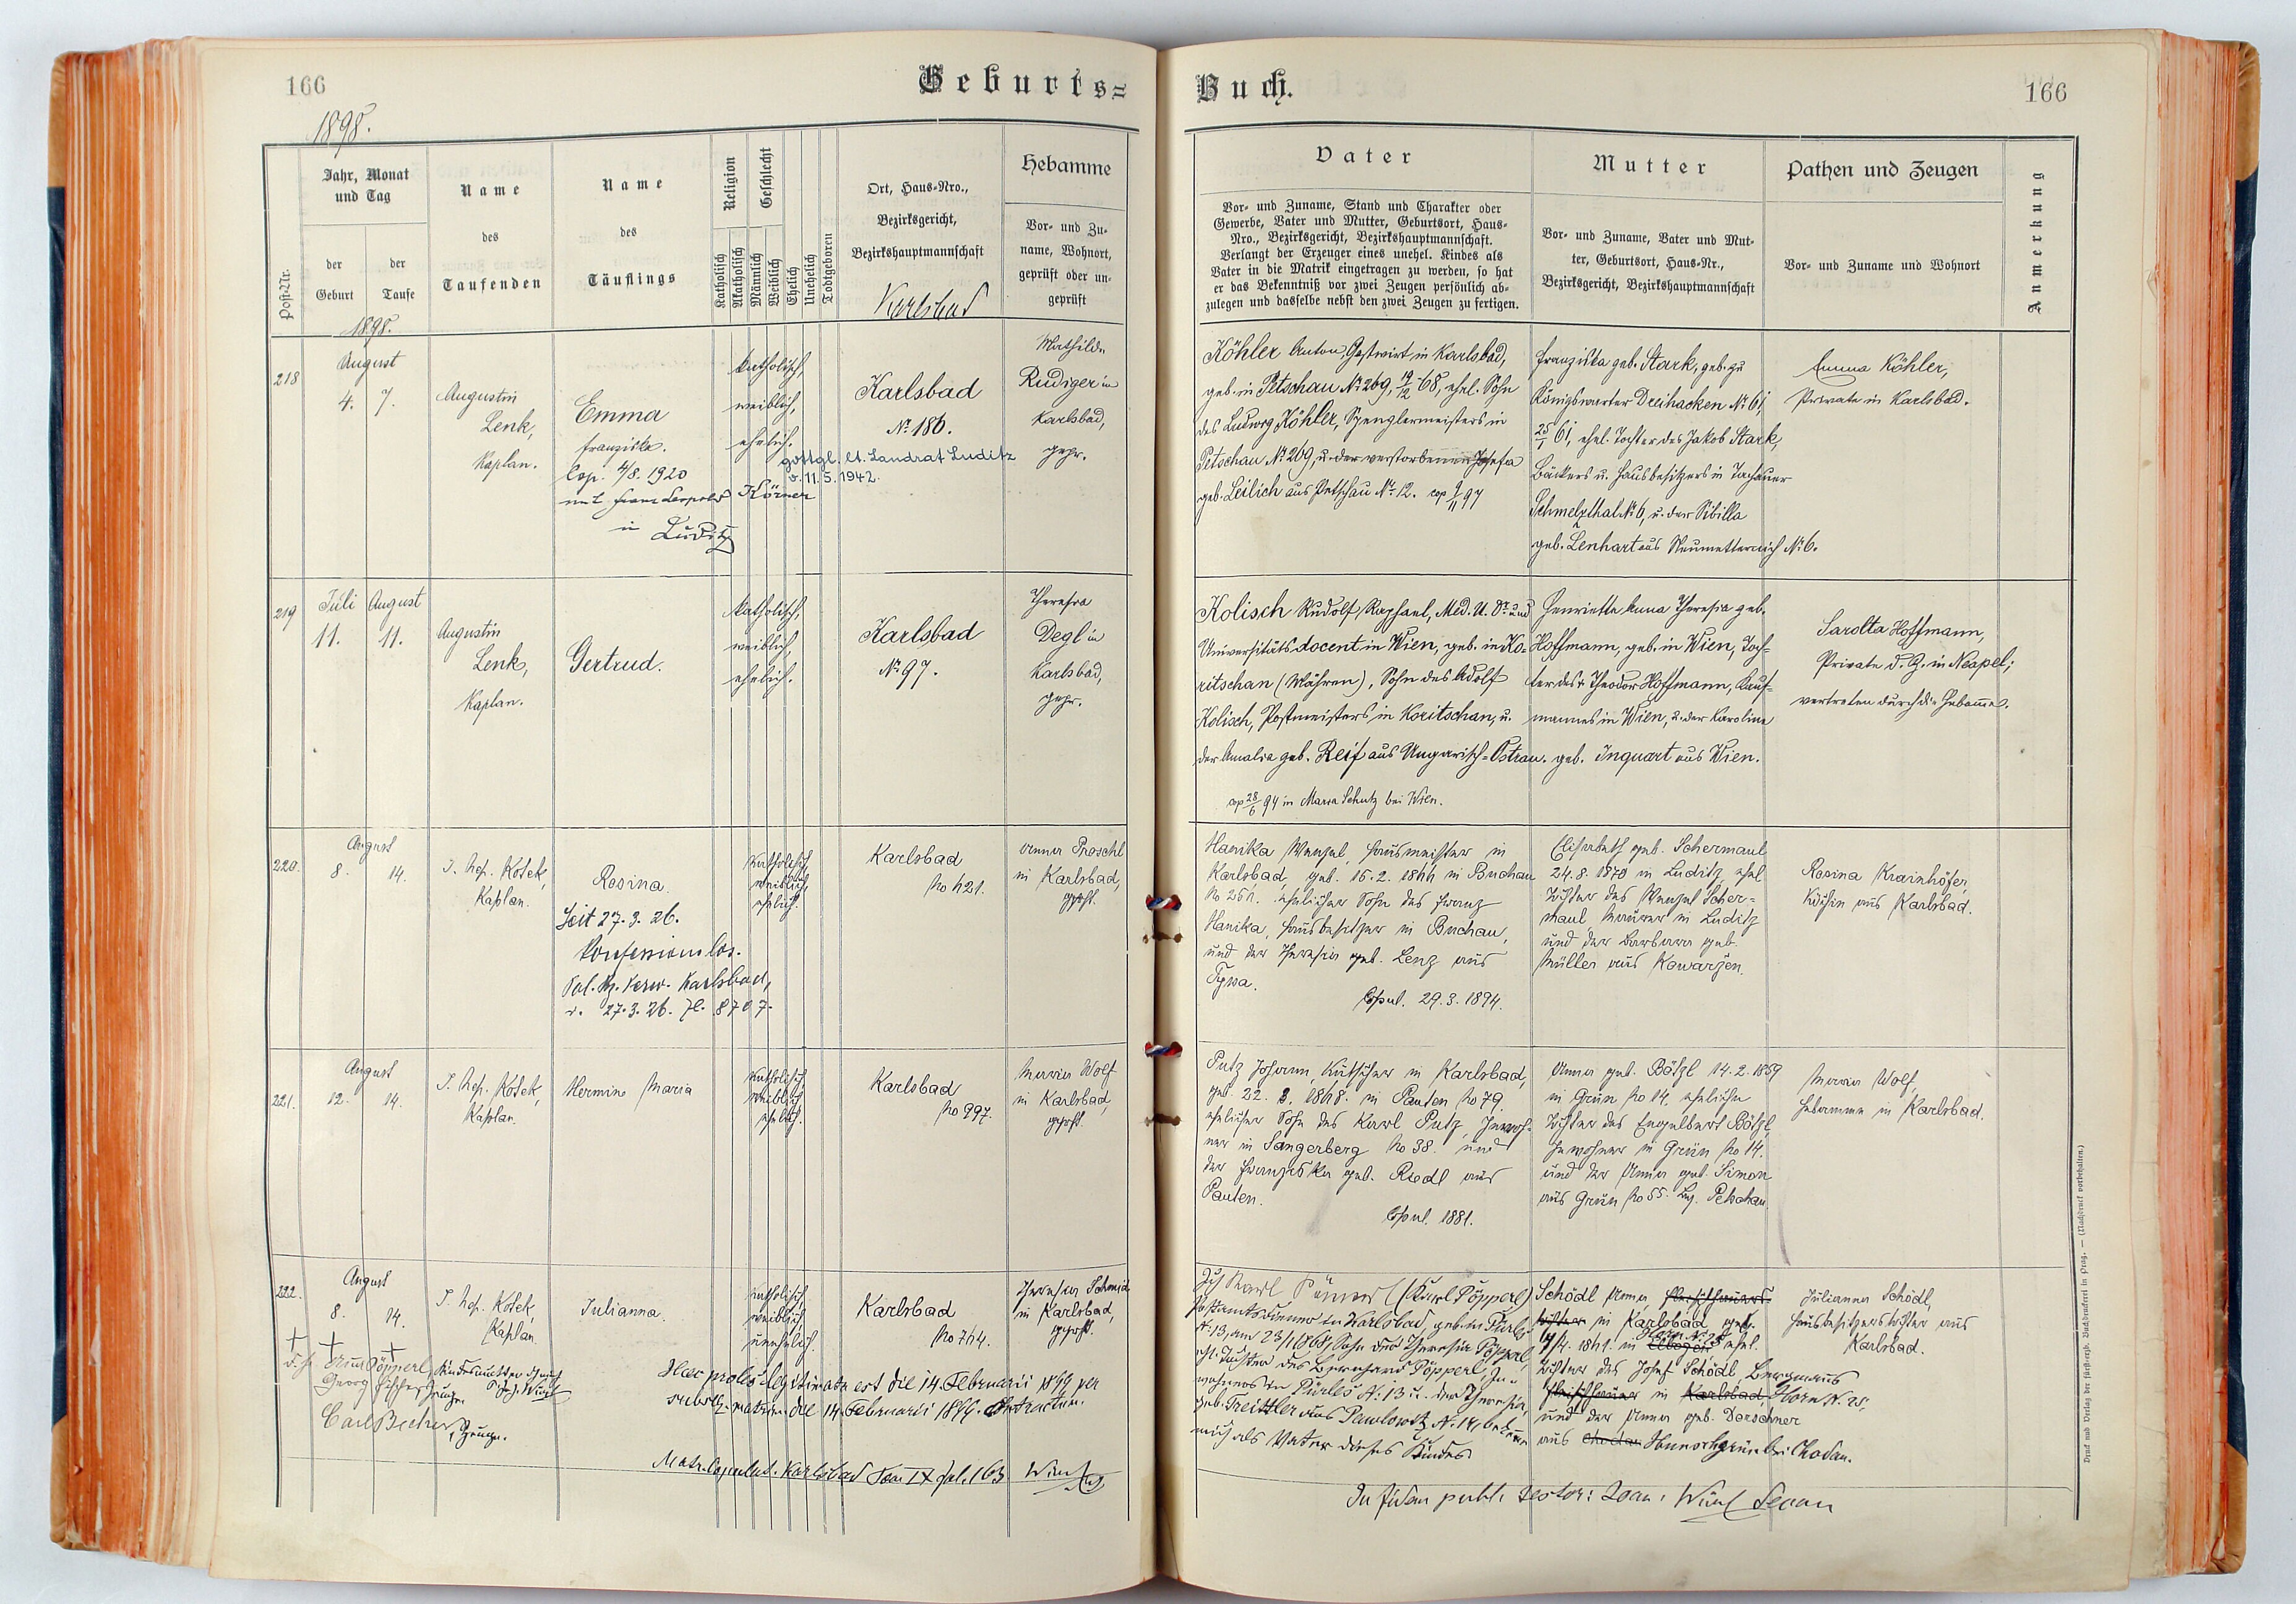 166
Geburts=
Buch.
166
1898.
Post-Nr.
Jahr, Monat
und Tag
der
Geburt
der
Taufe
Name
des
Taufenden
Name
des
Täuflings
Religion
Geschlecht
Katholisch
Akatholisch
Männlich
Weiblich
Ehelich
Unehelich
Todtgeboren
Ort, Haus=Nro.,
Bezirksgericht,
Bezirkshauptmannschaft
Karlsbad
Hebamme
Vor= und Zu=
name, Wohnort,
geprüft oder un=
geprüft
Vater
Vor= und Zuname, Stand und Charakter oder
Gewerbe, Vater und Mutter, Geburtsort, Haus=
Nro., Bezirksgericht, Bezirkshauptmannschaft.
Verlangt der Erzeuger eines unehel. Kindes als
Vater in die Matrik eingetragen zu werden, so hat
er das Bekenntniß vor zwei Zeugen persönlich ab=
zulegen und dasselbe nebst den zwei Zeugen zu fertigen.
Mutter
Vor= und Zuname, Vater und Mut=
ter, Geburtsort, Haus=Nr.,
Bezirksgericht, Bezirkshauptmannschaft
Pathen und Zeugen
Vor= und Zuname und Wohnort
Anmerkung
1898.
218
August
4. 7.
Augustin
Lenk,
Kaplan.
Emma
Franziska.
Cop. 4/8. 1920
mit Franz Leopold Körner
in Luditz
katholisch,
weiblich,
ehelich.
gottgl. lt. Landrat Luditz
v. 11. 5. 1942.
Karlsbad
No 186.
Mathilde
Rudiger in
Karlsbad,
gepr.
Köhler Anton, Gastwirt in Karlsbad,
geb. in Petschau No 269, 19/12 68, ehel. Sohn
des Ludwig Köhler, Spenglermeisters in
Petschau No 269, u. der verstorbenen Josefa
geb. Leilich aus Petschau No 12. cop 9/11 97
Franziska geb. Stark, geb. zu
Königswarter Dreihacken No 61,
25/1 61, ehel. Tochter des Jakob Stark,
Bäckers u. Hausbesitzers in Tachauer
Schmelzthal No 6, u. der Sibilla
geb. Lenhart aus Neumetternich No 6.
Emma Köhler,
Private in Karlsbad.
219
Juli August
11. 11.
Augustin
Lenk,
Kaplan.
Gertrud.
katholisch,
weiblich,
ehelich.
Karlsbad
No 97.
Theresia
Degl in
Karlsbad,
gepr.
Kolisch Rudolf Raphael, Med. U. Dr. und
Universitäts docent in Wien, geb. in Ko=
ritschan (Mähren), Sohn des Adolf
Kolisch, Postmeisters in Koritschan, u.
der Amalia geb. Reif aus Ungarisch=Ostrau.
cop 28/6 94 in Maria Schutz bei Wien.
Henriette Anna Theresia geb.
Hoffmann, geb. in Wien, Toch=
ter des + Theodor Hoffmann, Kauf=
mannes in Wien, u. der Karolina
geb. Inquart aus Wien.
Sarolta Hoffmann,
Private d. Z. in Neapel;
vertreten durch die Hebamme.
220.
August
8. 14.
J. Nep. Kotek,
Kaplan.
Rosina.
Seit 27. 3. 26.
konfessionslos.
Pol. Bz. Verw. Karlsbad,
v. 27. 3. 26. Zl. 8707.
Katholisch,
weiblich,
ehelich.
Karlsbad
No 421.
Anna Proschl
in Karlsbad,
geprft.
Hanika Wenzel, Hausmeister in
Karlsbad, geb. 16. 2. 1844 in Buchau
No 251. ehelicher Sohn des Franz
Hanika, Hausbesitzer in Buchau,
und der Theresia geb. Lenz aus
Tyssa.
Copul. 29. 3. 1894.
Elisabeth geb. Schermaul
24. 8. 1870 in Luditz, ehel.
Tochter des Wenzel Scher=
maul, Maurer in Luditz
und der Barbara geb.
Müller aus Kowarzen.
Rosina Krainhöfer,
Köchin aus Karlsbad.
221.
August
12. 14.
J. Nep. Kotek,
Kaplan.
Hermine Maria
Katholisch,
weiblich,
ehelich.
Karlsbad
No 997.
Maria Wolf
in Karlsbad,
geprft.
Putz Johann, Kutscher in Karlsbad,
geb. 22. 2. 1848. in Pauten No 79.
ehelicher Sohn des Karl Putz, Inwoh=
ner in Sangerberg No 38. und
der Franziska geb. Riedl aus
Pauten.
Copul. 1881.
Anna geb. Bötzl 14. 2. 1859
in Grün No 14, eheliche
Tochter des Engelbert Bötzl,
Inwohner in Grün No 14.
und der Anna geb. Simon
aus Grün No 55. Bez. Petschau.
Maria Wolf,
Hebamme in Karlsbad.
222.
August
8. 14.
J. Nep. Kotek,
Kaplan.
Julianna.
Katholisch,
weiblich,
unehelich.
Karlsbad
No 764.
Theresia Schmid
in Karlsbad,
geprft.
Anna Pöpperl, Kindesmutter
Georg Fischer, Zeuge.
Carl Becher, Zeuge.
Haec proles legitimata est die 14. Februarii 1899 per
subseq. matrim. die 14. Februarii 1899. contractum.
Matr. Copulat. Karlsbad Tom IX fol. 163.
Ich Karl Pöpperl (Karl Pöpperl)
Postamtsdiener in Karlsbad, geb. in Pürles
No. 13, am 23/1 1868, Sohn der Theresia Pöpperl,
ehl. Tochter des Bernhard Pöpperl, In=
wohners in Pürles No. 13 u. der Theresia,
geb. Treittler aus Pawlowitz No. 14, bekenne
mich als Vater dieses Kindes
Schödl Anna
in Karlsbad, geb.
in Elbogen ehel.
Tochter des Josef Schödl, Bergmanns
in Karlsbad, Horn No. 25,
und der Anna geb. Dorschner
aus Chodau Hunschgrün bei Chodau.
Julianna Schödl,
Hausbesitzerstochter aus
Karlsbad.
Druck und Verlag der fürsterzb. Buchdruckerei in Prag. — (Nachdruck vorbehalten.)